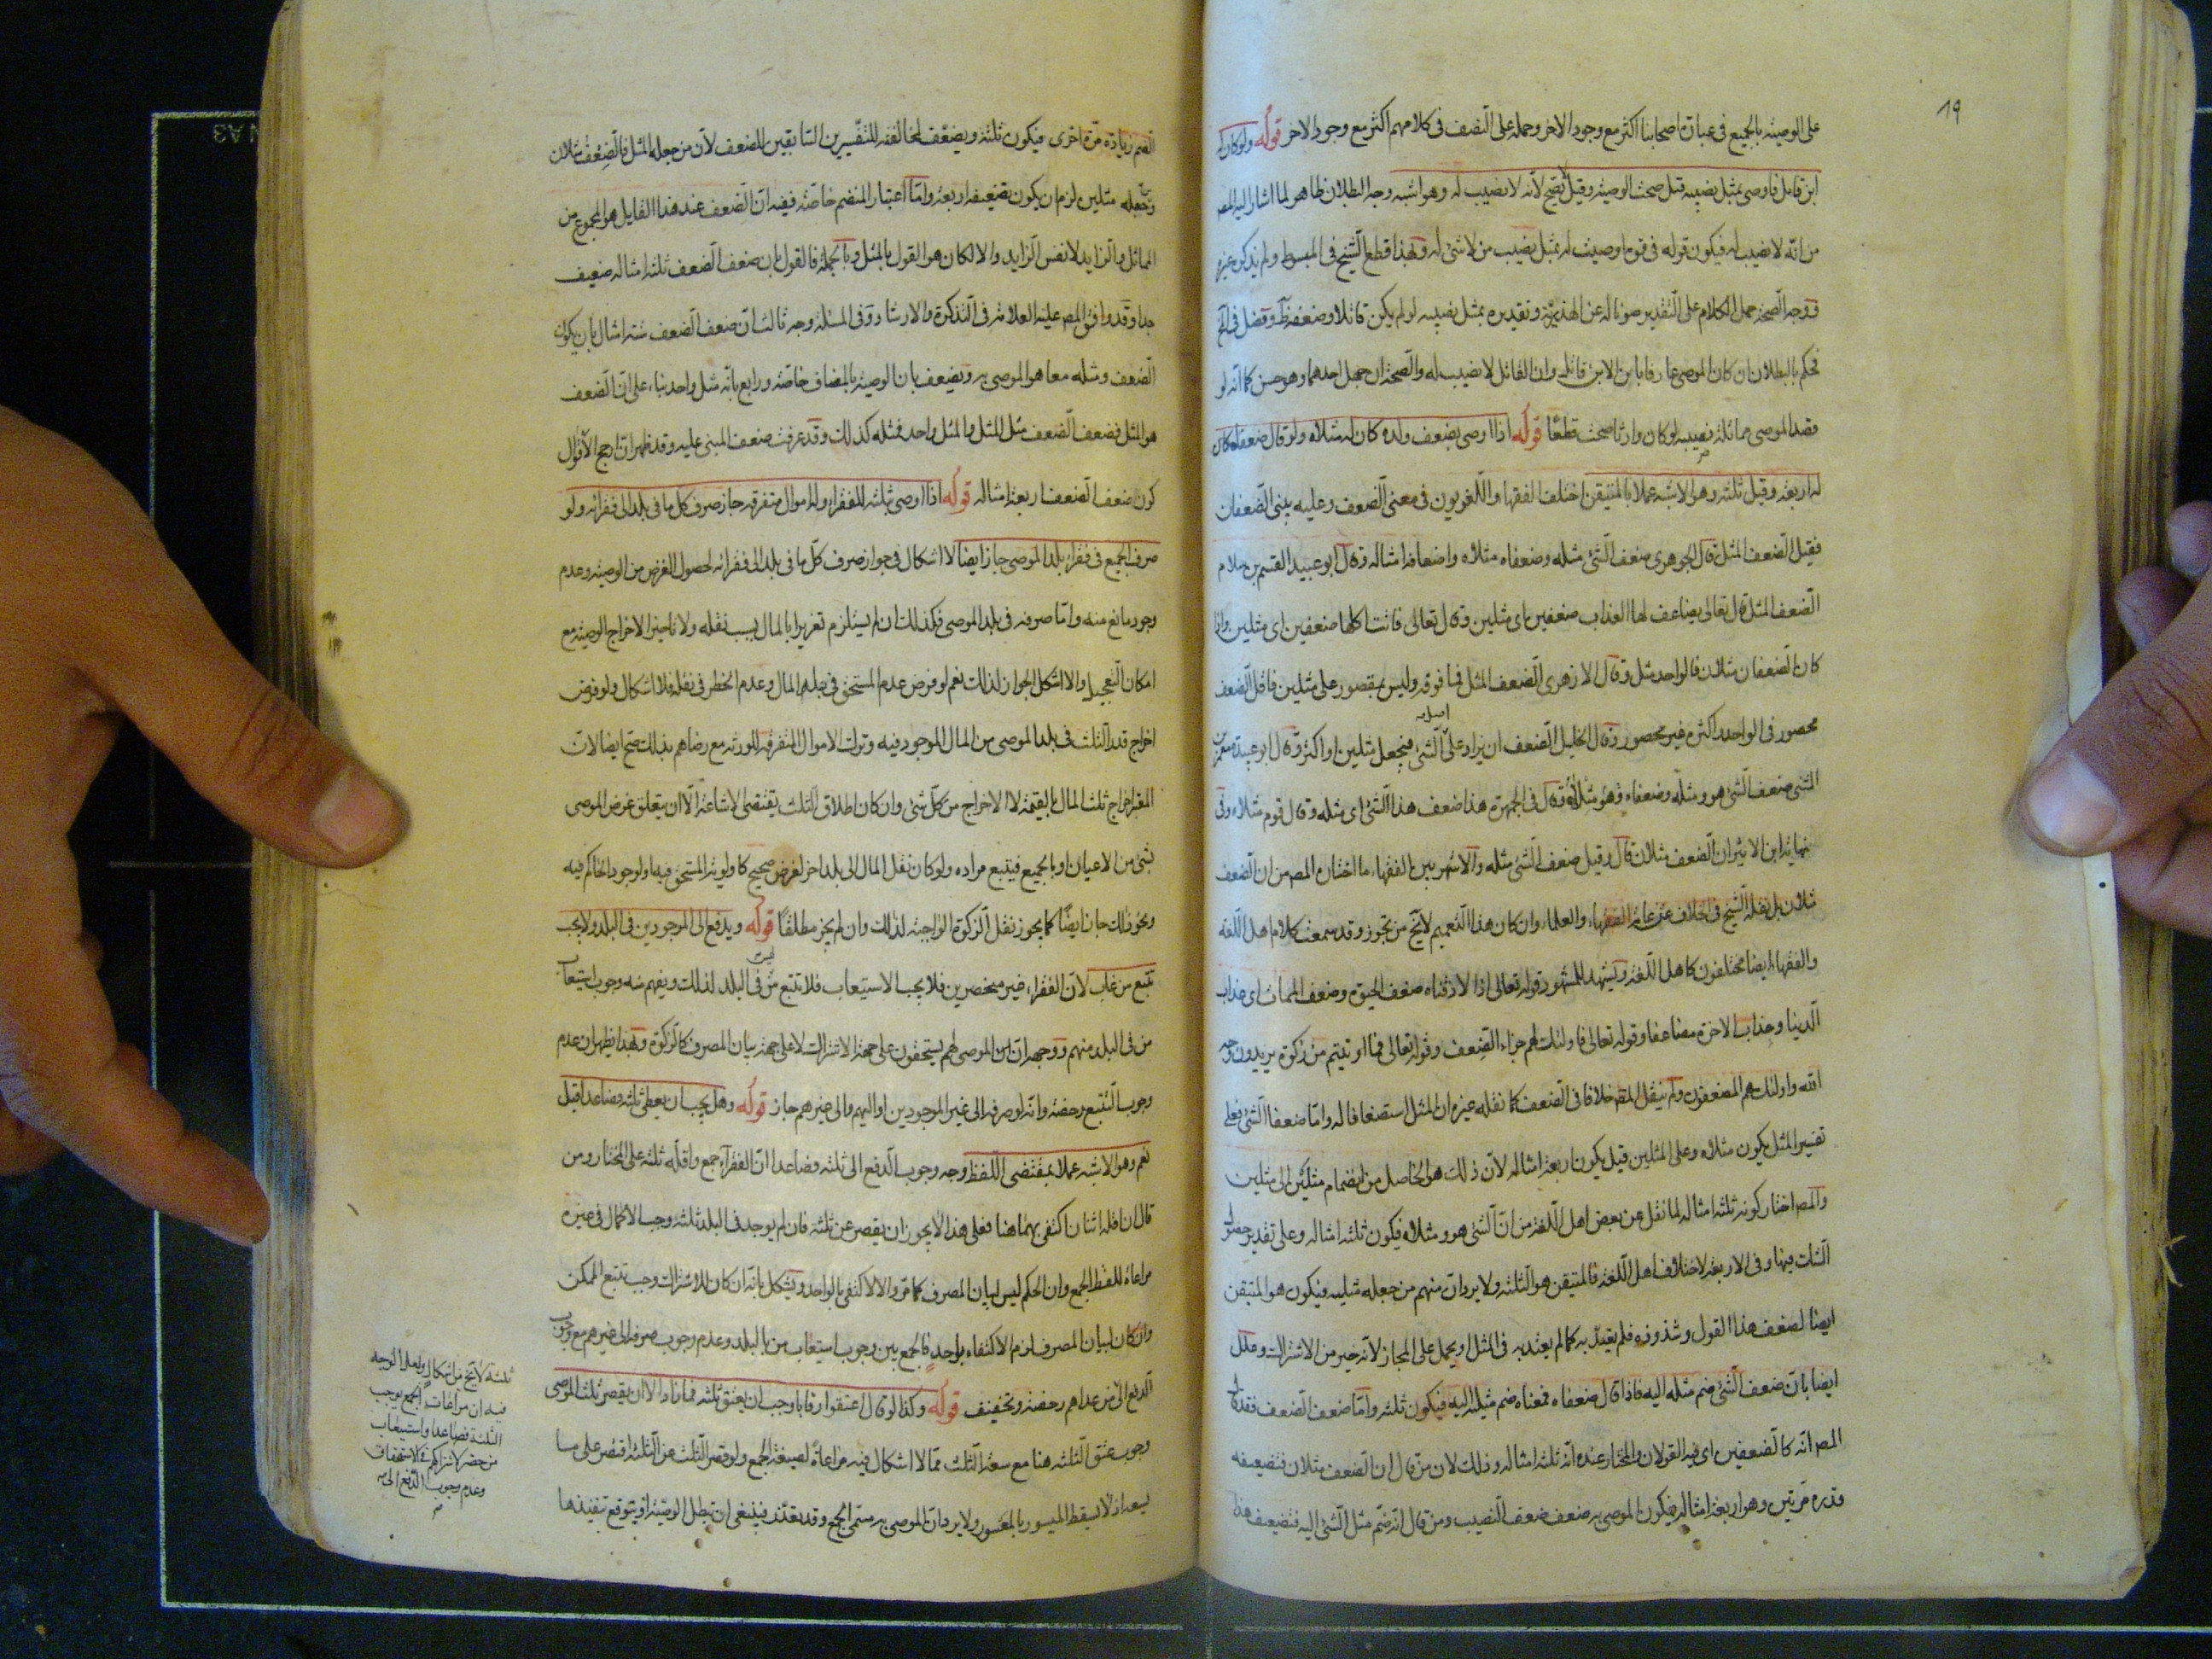 19
على الوصية بالجميع في عبارة اصحابنا اكثر مع وجود الاخر وحمله على النصف في كلامهم اكثر مع وجود الاخر قوله ولو كان له
ابن قاتل فاوصى بمثل نصيبه قيل صحت الوصية وقيل لا تصح لانه لا نصيب له وهو اشبه وجه البطلان ظاهر لما اشار اليه المص
من انه لا نصيب له فيكون قوله في قوة اوصيت له بمثل نصيب من لا شئ له وبهذا قطع الشيخ في المبسوط ولم يذكر غيره
ووجه الصحة حمل الكلام على التقدير صونا له عن الهذرية وتقديره بمثل نصيبه لو لم يكن قاتلا وضعفه ظ وفصل في لف
فحكم بالبطلان ان كان الموصي عارفا بان الابن قاتل وان القاتل لا نصيب له والصحة ان جهل احدهما وهو حسن كما انه لو
قصد الموصي مماثلة نصيبه لو كان وارثا صحت قطعا قوله اذا اوصى بضعف ولده كان له مثلاه ولو قال ضعفاه كان
له اربعة وقيل ثلثة وهو الاشبه عملا بالمتيقن اختلف الفقهاء واللغويون في معنى الضعف وعليه يبنى الضعفان
فقيل الضعف المثل قال الجوهري ضعف الشئ مثله وضعفاه مثلاه واضعافه امثاله وقال ابو عبيد القسم بن سلام
الضعف المثل قال تعالى يضاعف لها العذاب ضعفين اى مثلين وقال تعالى فاتت اكلها ضعفين اى مثلين واذا
كان الضعفان مثلان فالواحد مثل وقال الازهري الضعف المثل فما فوقه وليس بمقصور على مثلين فاقل الضعف
محصور في الواحد واكثره غير محصور وقال الخليل الضعف ان يزاد على اصل الشئ فيجعل مثلين او اكثر وقال ابو عبيدة معمر بن
المثنى ضعف الشئ هو ومثله وضعفاه هو ومثلاه وقال في الجمهرة هذا ضعف هذا الشئ اى مثله وقال قوم مثلاه وفي
نهاية ابن الاثير ان الضعف مثلان قال وقيل ضعف الشئ مثله والاشهر بين الفقهاء ما اختاره المص من ان الضعف
مثلان بل نقله الشيخ في الخلاف عن عامة الفقهاء والعلماء وان كان هذا التعميم لا يخ من تجوز وقد سمعت كلام اهل اللغة
والفقهاء ايضا مختلفون كاهل اللغة ويشهد للمشهور قوله تعالى اذا لاذقناك ضعف الحيوة وضعف الممات اى عذاب
الدنيا وعذاب الاخرة مضاعفا وقوله تعالى فاولئك لهم جزاء الضعف وقوله تعالى فما اوتيتم من زكوة يريدون وجه
الله واولئك هم المضعفون ولم ينقل المص خلافا في الضعف كما نقله غيره ان المثل استضعافا له واما ضعفا الشئ فعلى
تفسير المثل يكون مثلاه وعلى المثلين قيل يكون اربعة امثاله لان ذلك هو الحاصل من انضمام مثلين الى مثلين
والمص اختار كونه ثلثة امثاله لما نقل عن بعض اهل اللغة من ان الشئ هو ومثلاه فيكون ثلثة امثاله وعلى تقدير حصول
الشك فيها وفي الاربعة لاختلاف اهل اللغة فالمتيقن هو الثلثة ولا يرد ان منهم من جعله مثليه فيكون هو المتيقن
ايضا لضعف هذا القول وشذوذه فلم يعتد به كما لم يعتد به في المثل او يحمل على المجاز لانه خير من الاشتراك وعلل
ايضا بان ضعف الشئ ضم مثله اليه فاذا قال ضعفاه فمعناه ضم مثليه اليه فيكون ثلثة واما ضعف الضعف فقد قال
المص انه كالضعفين اى فيه القولان والمختار عنده انه ثلثة امثاله وذلك لان من قال ان الضعف مثلان فتضعيفه
قدره مرتين وهو اربعة امثاله فيكون الموصى به ضعف ضعف النصيب ومن قال انه ضم مثل الشئ اليه فتضعيف هذا
الضم زيادة مرة اخرى فيكون ثلثة ويضعف لمخالفته للتفسيرين السابقين للضعف لان من جعله المثل فالضعف مثلان
ومن جعله مثلين لزم ان يكون تضعيفه اربعة واما اعتبار المنضم خاصة ففيه ان الضعف عند هذا القايل هو المجموع من
المماثل والزايد لا نفس الزايد والا لكان هو القول بالمثل وبالجملة فالقول بان ضعف الضعف ثلثة امثاله ضعيف
جدا وقد وافق المص عليه العلامة في التذكرة والارشاد وفي المسئلة وجه ثالث ان ضعف الضعف ستة امثال بان يكون
الضعف ومثله معا هو الموصى به ويضعف بان الوصية بالمضاف خاصة ورابع بانه مثل واحد بناء على ان الضعف
هو المثل فضعف الضعف مثل المثل والمثل واحد فمثله كذلك وقد عرفت ضعف المبنى عليه وقد ظهر ان ارجح الاقوال
كون ضعف الضعف اربعة امثاله قوله اذا اوصى بثلثه للفقراء وله اموال متفرقة جاز صرف كل ما في بلد الى فقرائه ولو
صرف الجميع في فقراء بلد الموصي جاز ايضا لا اشكال في جواز صرف كل ما في بلد الى فقرائه لحصول الغرض من الوصية وعدم
وجود مانع منه واما صرفه في بلد الموصي فكذلك ان لم يستلزم تغريرا بالمال بسبب نقله ولا تاخيرا لاخراج الوصية مع
امكان التعجيل والا اشكل الجواز لذلك نعم لو فرض عدم المستحق في بلد المال وعدم الخطر في نقله فلا اشكال ولو فرض
اخراج قدر الثلث في بلد الموصي من المال الموجود فيه وترك الاموال المتفرقة للورثة مع رضاهم بذلك صح ايضا لان
المعتبر اخراج ثلث المال بالقيمة لا الاخراج من كل شئ وان كان اطلاق الثلث يقتضي الاشاعة الا ان يتعلق غرض الموصي
بشئ من الاعيان او بالجميع فيتبع مراده ولو كان نقل المال الى بلد اخر لغرض صحيح كاولوية المستحق فيها ولوجود الحاكم فيه
ونحو ذلك جاز ايضا كما يجوز نقل الزكوة الواجبة لذلك وان لم يجز مطلقا قوله ويدفع الى الموجودين في البلد ولا يجب
تتبع من غاب لان الفقراء غير منحصرين فلا يجب الاستيعاب فلا تتبع من ليس في البلد لذلك ويفهم منه وجوب استيعاب
من في البلد منهم ووجهه ان الموصى لهم يستحقون على جهة الاشتراك لا على جهة بيان المصرف كالزكوة وبهذا يظهر ان عدم
وجوب التتبع رخصة وانه لو صرفه الى غير الموجودين او اليهم والى غيرهم جاز قوله وهل يجب ان يعطى ثلثة فصاعدا قيل
نعم وهو الاشبه عملا بمقتضى اللفظ وجه وجوب الدفع الى ثلثة فصاعدا ان الفقراء جمع واقله ثلثة على المختار ومن
قال ان اقله اثنان اكتفى بهما هنا فعلى هذا لا يجوز ان يقصر عن ثلثة فان لم يوجد في البلد ثلثة وجب الاكمال في غيره
مراعاة للفظ الجمع وان الحكم ليس لبيان المصرف كما مر والا لاكتفى بالواحد ويشكل بانه ان كان للاشتراك وجب تتبع الممكن
وان كان لبيان المصرف لزم الاكتفاء بواحد فالجمع بين وجوب استيعاب من بالبلد وعدم وجوب صرفه الى غيرهم مع وجوب
الدفع الى من عداهم رخصة وتخفيف قوله وكذا لو قال اعتقوا رقابا وجب ان يعتق ثلثة فما زاد الا ان يقصر ثلث الموصي
وجوب عتق الثلثة هنا مع سعة الثلث مما لا اشكال فيه مراعاة لصيغة الجمع ولو قصر الثلث عن الثلثة اقتصر على ما
يسعه اذ لا يسقط الميسور بالمعسور ولا يرد ان الموصى به مسمى الجمع وقد تعذر فينبغي ان تبطل الوصية او يتوقع تنفيذها
ثلثة لا يخ من اشكال ولعل الوجه
فيه ان مراعات الجمع يوجب
الثلثة فصاعدا واستيعاب
من حضر لاشتراكهم في الاستحقاق
وعدم وجوب الدفع الى